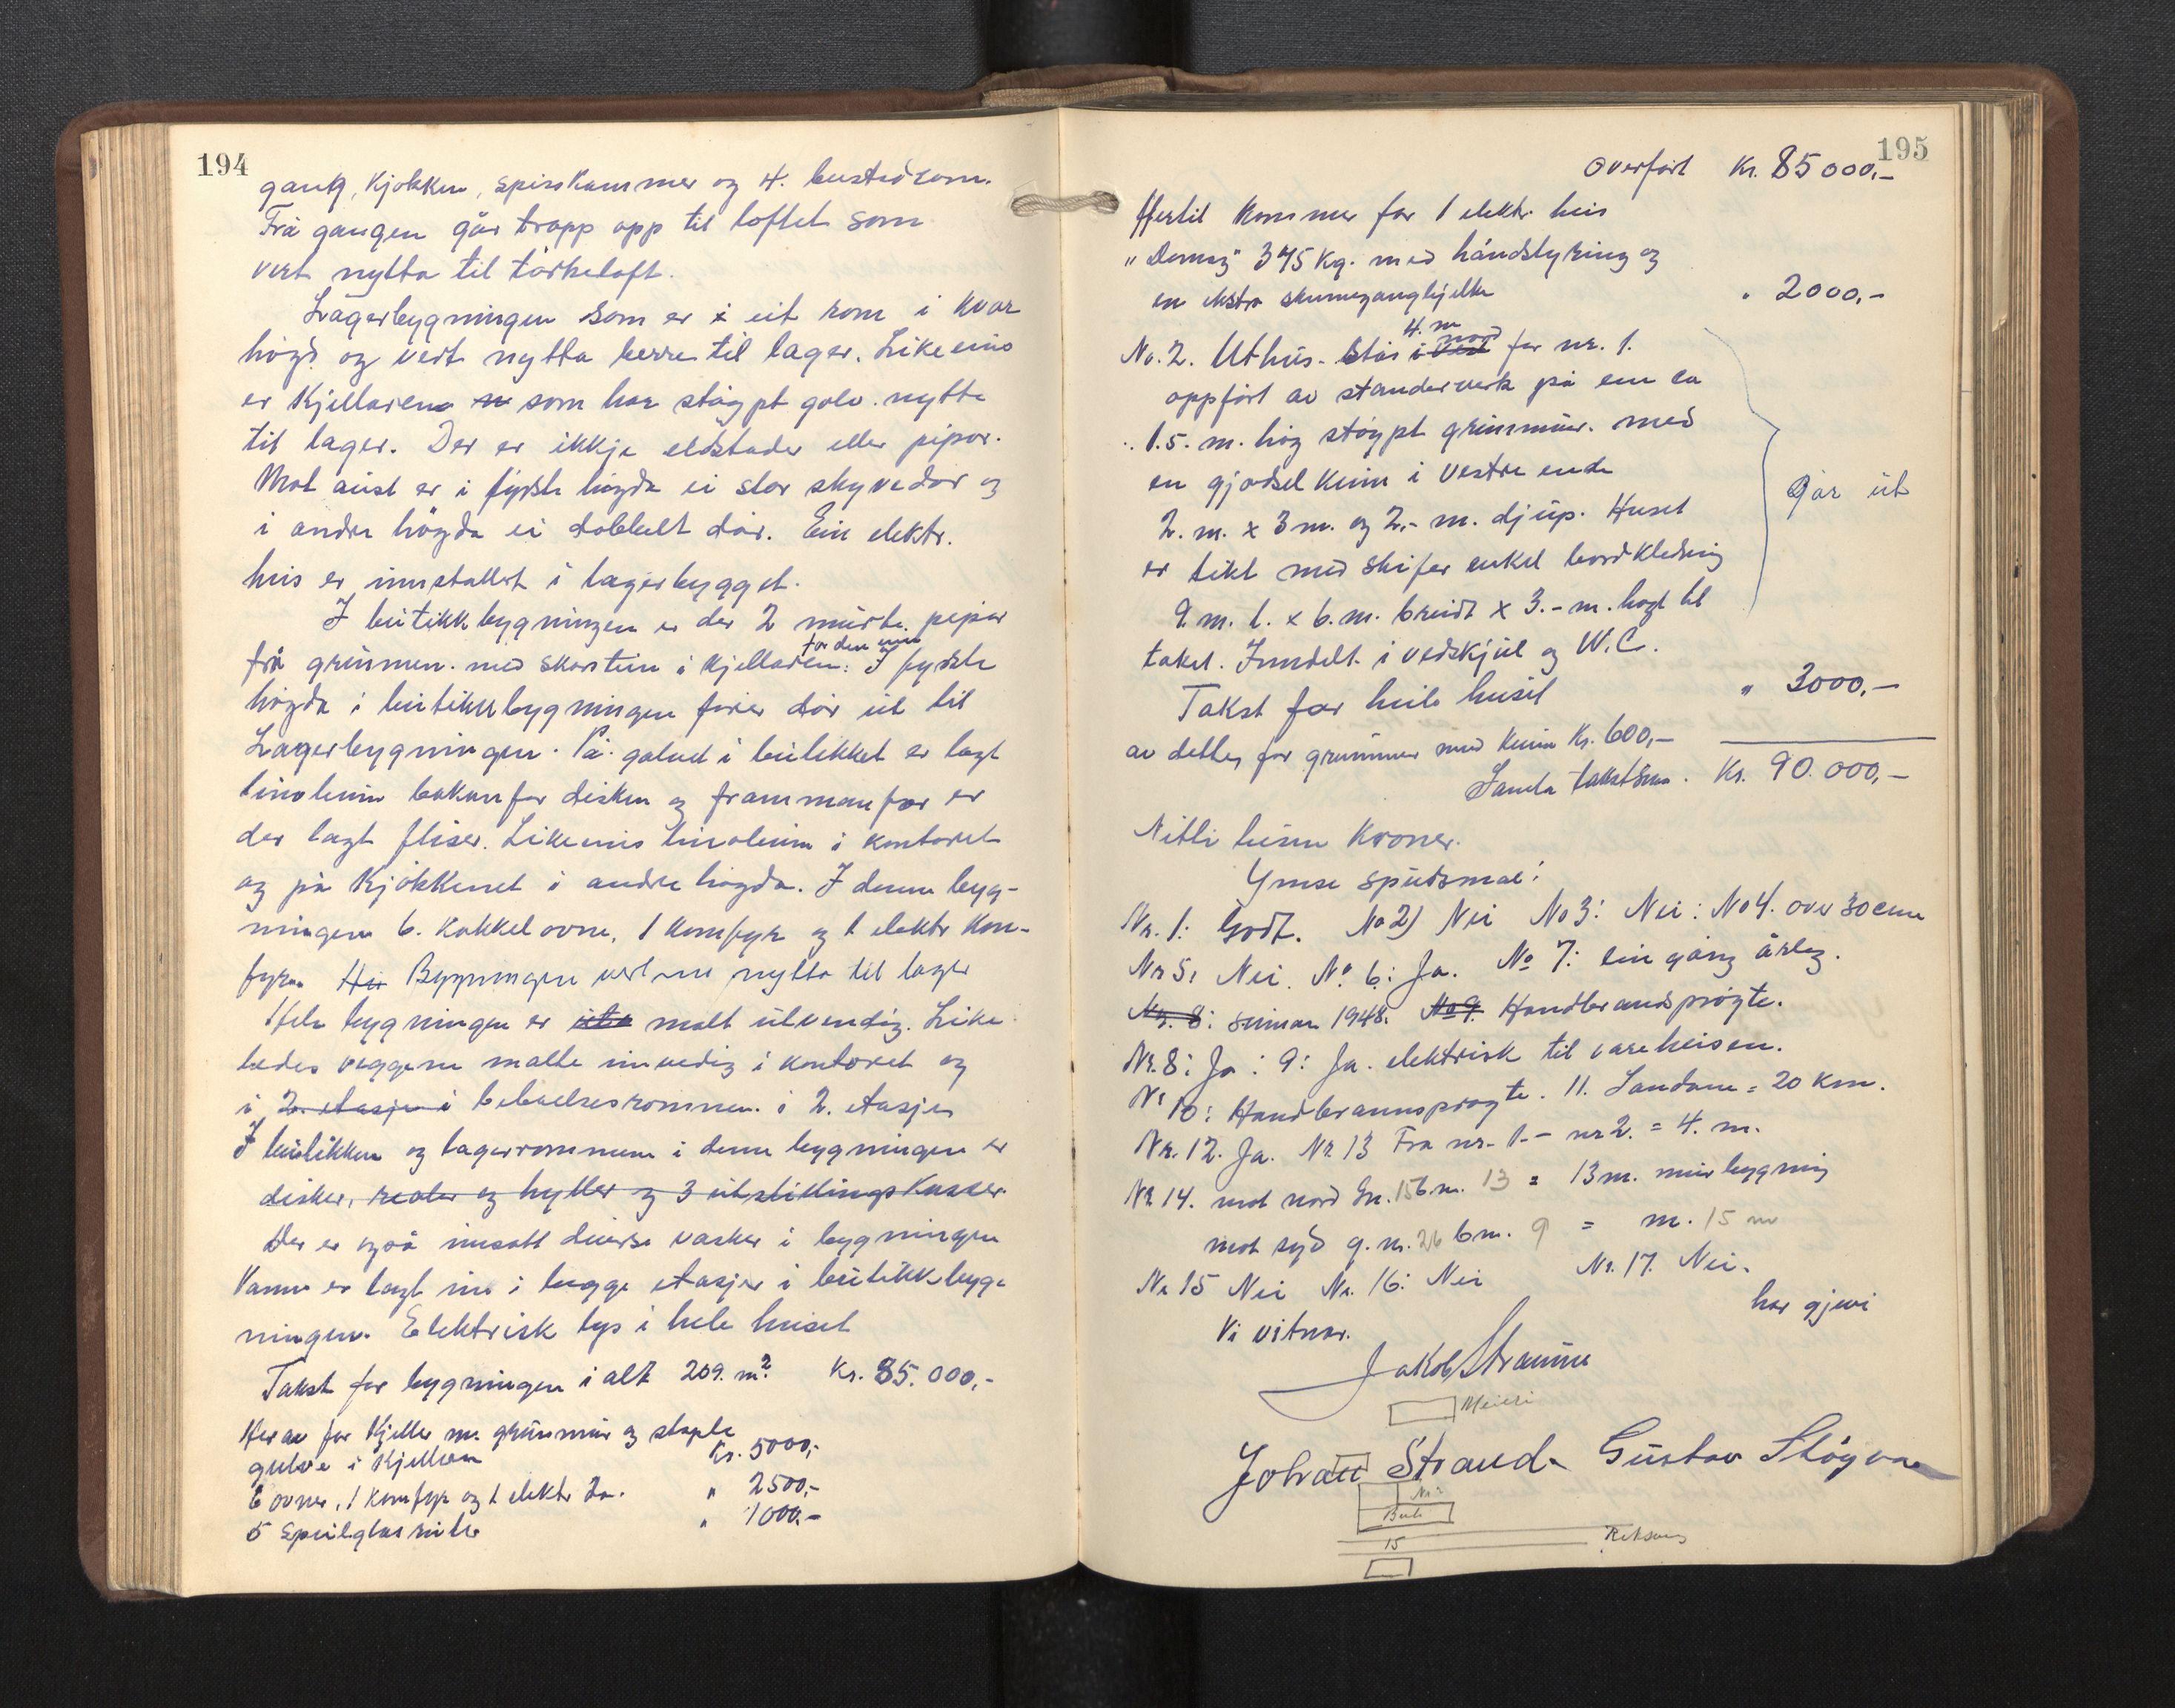 194
gang, kjøkken, spiskammer og 4. bustadrom.
Frå gangen går trapp opp til loftet som
vert nytta til tørkeloft.
Lagerbygningen som er i eit rom i kvar
høgd og vert nytta berre til lager. Likeeins
er kjellaren som har støypt golv nytta
til lager. Der er ikkje eldstader eller pipor.
Mot aust er i fyrste høgda ei stor skyvedør og
i andre högda ei dobbelt dør. Ein elektr.
heis er innstallert i lagerbygget.
I butikkbygningen er der 2 murte pipor
frå grunnen med skorstein i kjellaren. I fyrste
høgda i butikkbygningen fører dør ut til
Lagerbygningen. På golvet i butikket er lagt
linoleum bakanfor disken og frammanfor er
der lagt fliser. Likeeins linoleum i kontoret
og på kjøkkenet i andre høgda. I denne byg-
ningen 6. kakkelovne, 1 komfyr og 1 elektr kom-
fyr. Bygningen vert nytta til lager
Hele bygningen er malt utvendig. Like
ledes veggene malte invedig i kontoret og
i 2. etasje i beboelsesrommen i 2. etasje
I butikken og lagerrommene i denne bygningen er
disker, reoler og hyller og 3 utstillingskasser.
Der er også innsatt diverse vasker i bygningen
Vann er lagt inn i begge etasjer i butikkbyg-
ningen. Elektrisk lys i hele huset
Takst for bygningen i alt 209. m² Kr. 85.000,-
Herav for kjeller m. grunmur og støpte
gulve i kjelleren Kr. 5000,-
6 ovner, 1 komfyr og 1 elektr do. " 2500,-
5 Speilglas ruter " 1000,-
195
Overført Kr. 85000,-
Hertil kommer for 1 elektr. heis
"Demag" 375 kg. med håndstyring og
en ekstra " 2000,-
4. m nord
No. 2. Uthus. Står i vest for nr. 1.
oppført av standerverk på em ca
1.5. m. høg støypt grunnmur. med
en gjødselkum i vestre ende
2. m. x 3 m. og 2.- m. djup. Huset
er tekt med skifer enkel bordkledning
Går ut
9. m. l. x 6. m. breidt x 3.- m. høgt til
taket. Inndelt i vedskjul og W.C.
Takst for heile huset " 3000,-
av dette, for grunnmur med kum Kr. 600,-
Samla takstsum. Kr. 90.000,-
Nitti tusen kroner.
Ymse spursmål:
Nr. 1: Godt. No 2) Nei No 3: Nei: No 4. over 30 cm
Nr 5: Nei. No. 6: Ja. No 7: ein gang årleg.
Nr. 8: sumar 1948. No 9. Handbrandsprøyte.
Nr. 8: Ja: 9: Ja. elektrisk til vareheisen.
Nr 10: Handbrannsprøyte. 11. Sandane = 20 km.
Nr. 12. Ja. Nr 13 Fra nr. 1.- nr 2. = 4. m.
Nr 14. mot nord Gn. 15 b.n. 13 = 13 m. murbygning
mot syd g.n. 26 b.n. 9 = m. 15 m
Nr 15 Nei Nr. 16: Nei Nr. 17. Nei.
har gjevi
Vi vitnar.
Jakob Straume
Meieri
Johan Strand. Gustav Støyva
Nr 1
Butik
15
Riksveg